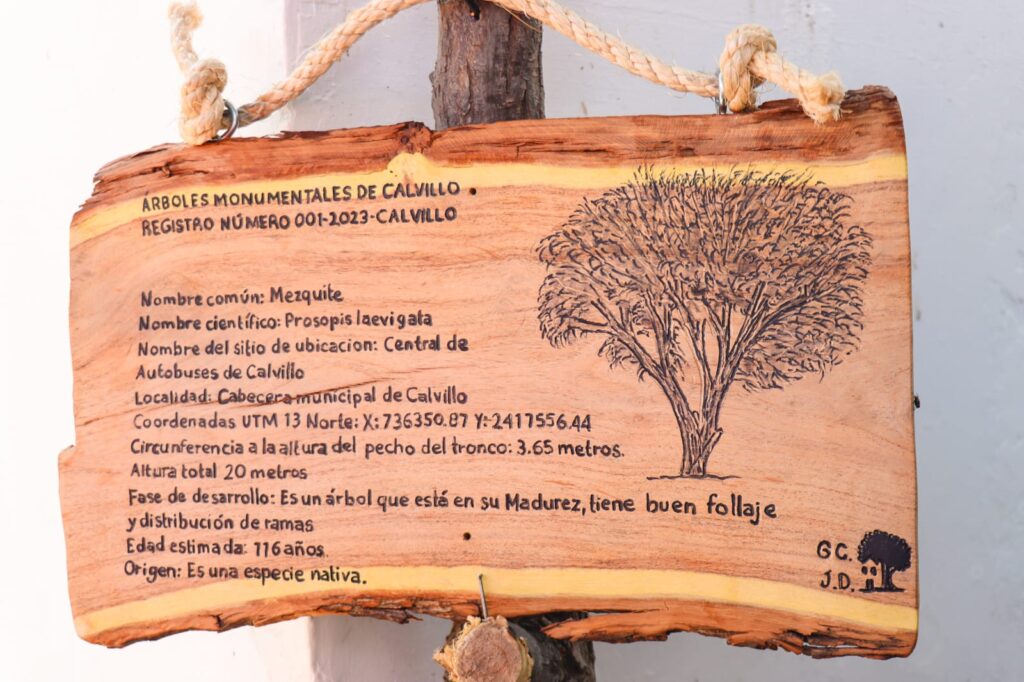 ÁRBOLES MONUMENTALES DE CALVILLO
REGISTRO NÚMERO 001-2023-CALVILLO
Nombre común: Mezquite
Nombre científico: Prosopis laevigata
Nombre del sitio de ubicacion: Central de
Autobuses de Calvillo
Localidad: Cabecera municipal de Calvillo
Coordenadas UTM 13 Norte: X: 736350.87 Y: 2417556.44
Circunferencia a la altura del pecho del tronco: 3.65 metros.
Altura total 20 metros
Fase de desarrollo: Es un árbol que está en su Madurez, tiene buen follaje
y distribución de ramas
Edad estimada: 116 años.
Origen: Es una especie nativa.
G.C.
J.D.